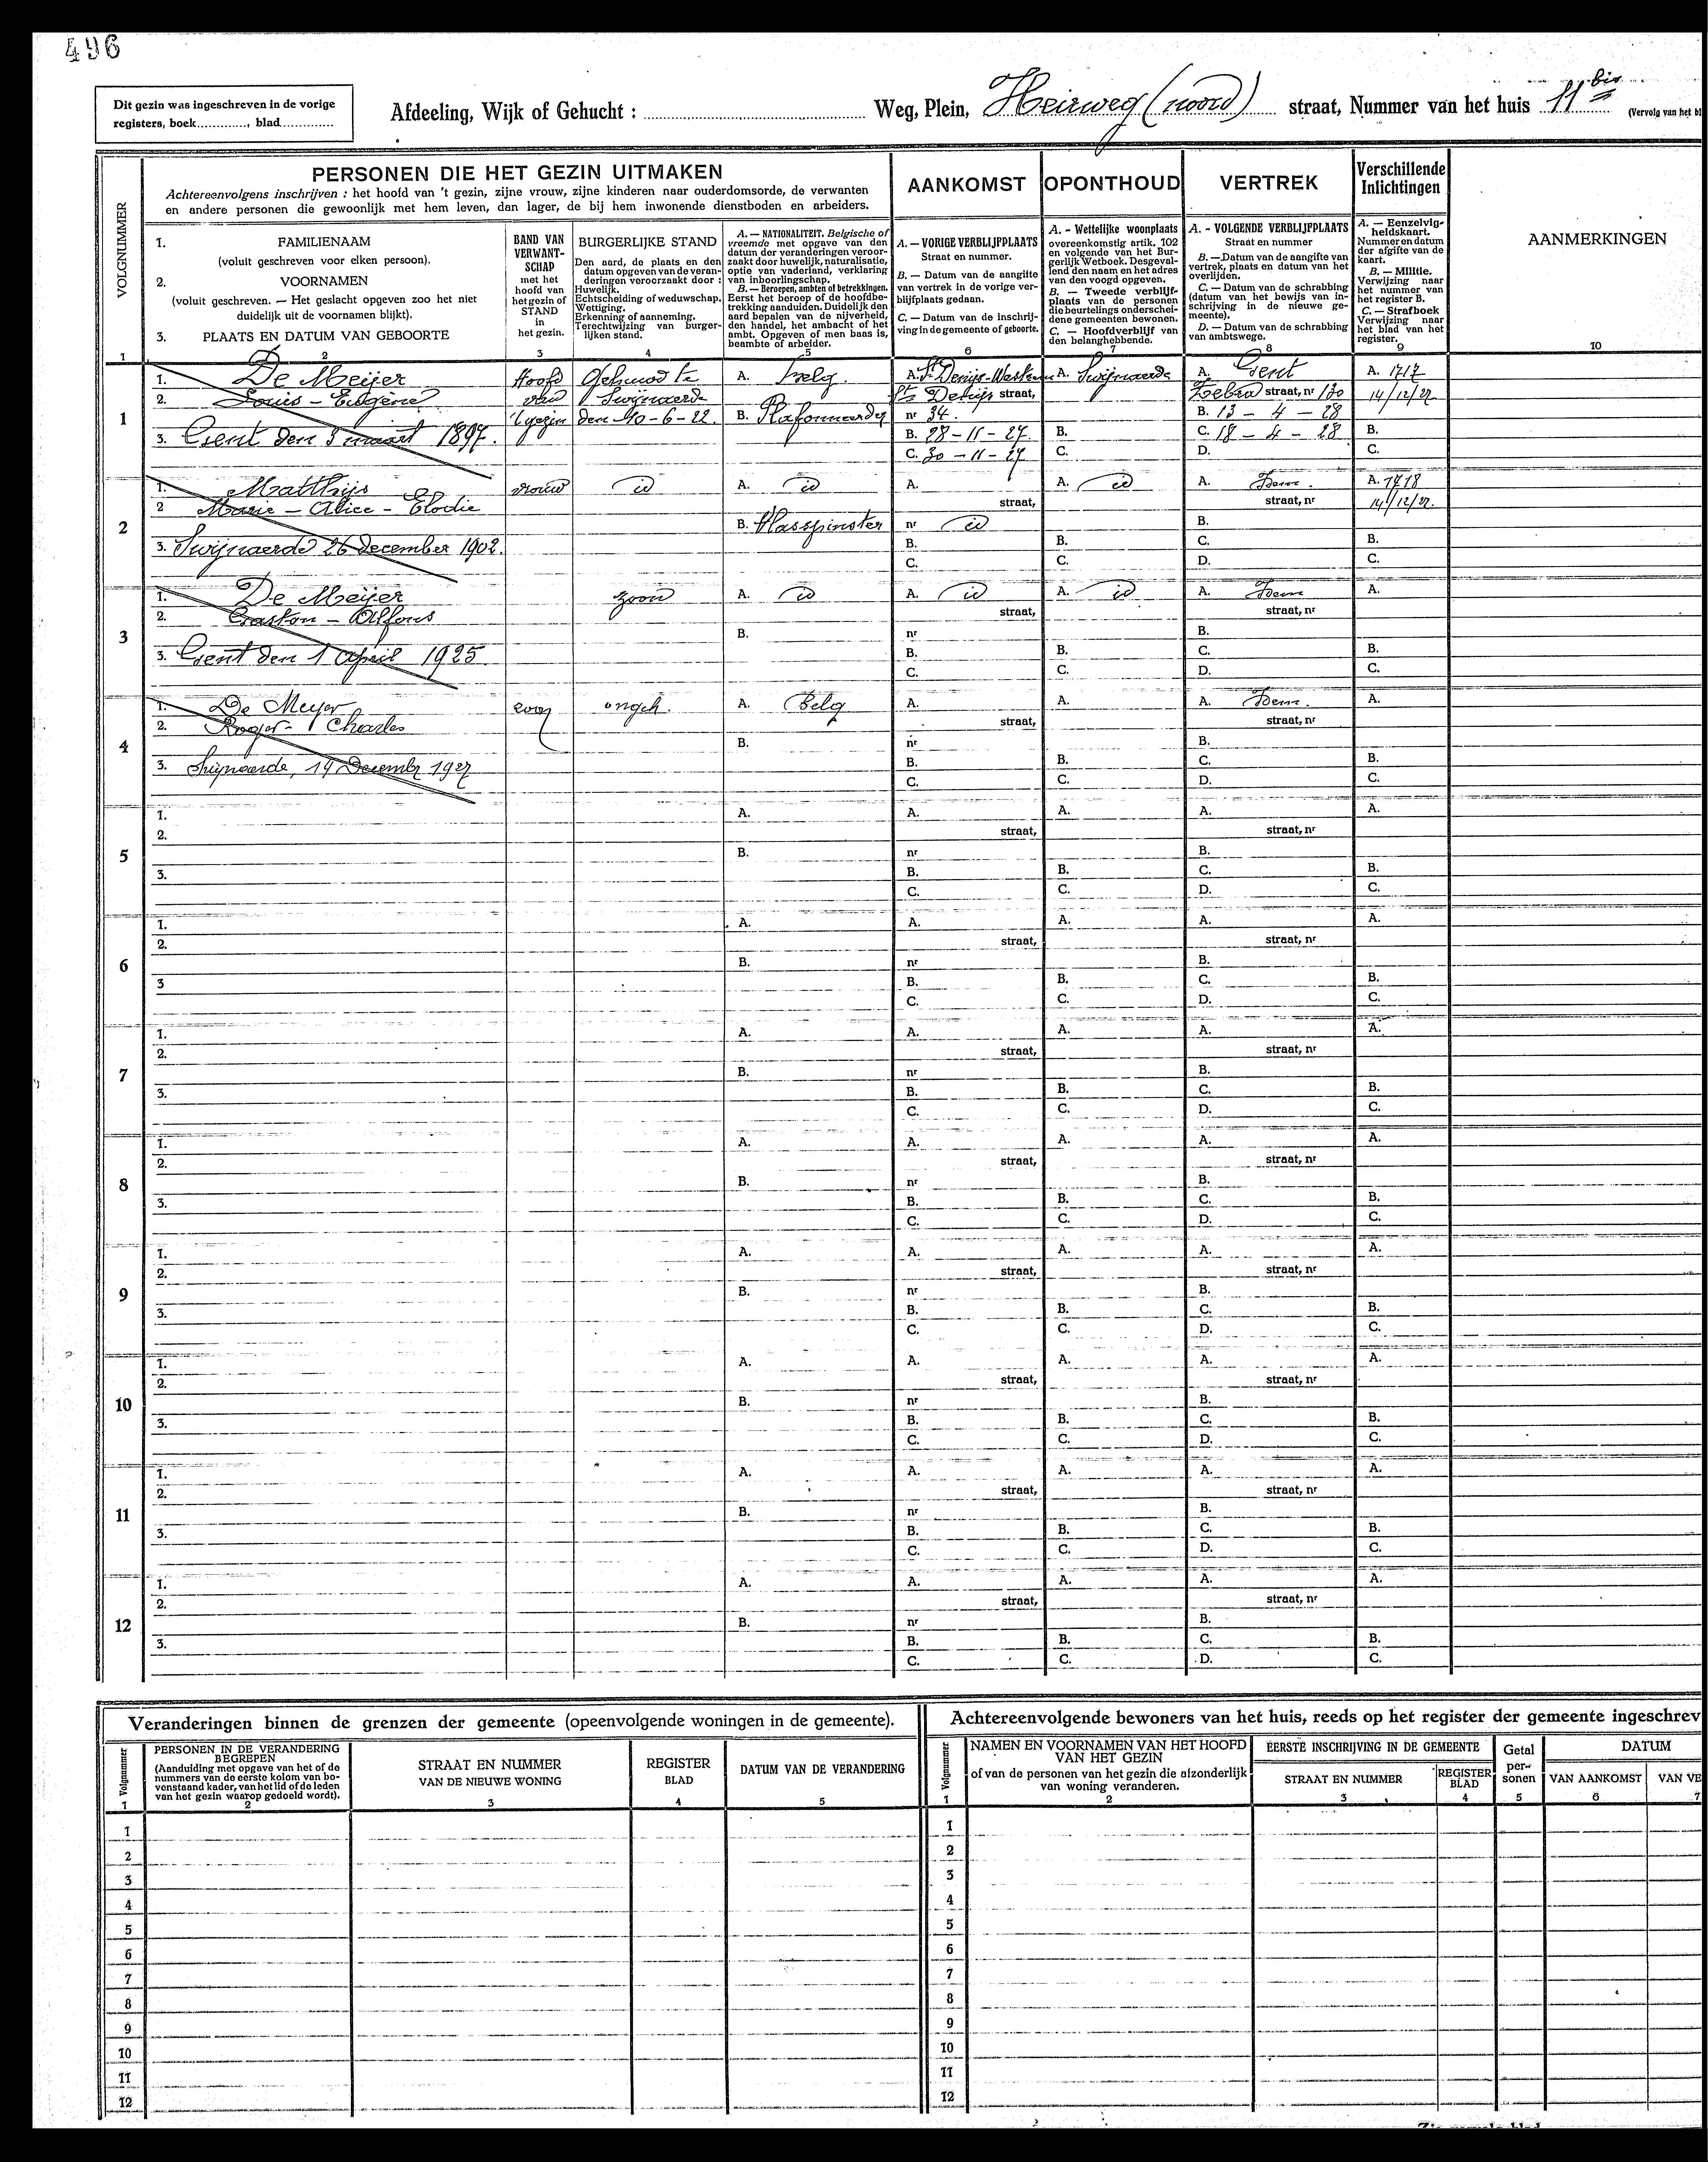 496
Dit gezin was ingeschreven in de vorige
registers, boek............., blad.............
Afdeeling, Wijk of Gehucht : ........ Weg, Plein, Heirweg (noord) straat, Nummer van het huis 11 bis (Vervolg van het bl
VOLGNUMMER
PERSONEN DIE HET GEZIN UITMAKEN
Achtereenvolgens inschrijven : het hoofd van 't gezin, zijne vrouw, zijne kinderen naar ouderdomsorde, de verwanten
en andere personen die gewoonlijk met hem leven, dan lager, de bij hem inwonende dienstboden en arbeiders.
1. FAMILIENAAM
(voluit geschreven voor elken persoon).
2. VOORNAMEN
(voluit geschreven. — Het geslacht opgeven zoo het niet
duidelijk uit de voornamen blijkt).
3. PLAATS EN DATUM VAN GEBOORTE
BAND VAN
VERWANT-
SCHAP
met het
hoofd van
het gezin of
STAND
in
het gezin.
BURGERLIJKE STAND
Den aard, de plaats en den
datum opgeven van de veran-
deringen veroorzaakt door :
Huwelijk.
Echtscheiding of weduwschap.
Wettiging.
Erkenning of aanneming.
Terechtwijzing van burger-
lijken stand.
A. — NATIONALITEIT. Belgische of
vreemde met opgave van den
datum der veranderingen veroor-
zaakt door huwelijk, naturalisatie,
optie van vaderland, verklaring
van inboorlingschap.
B. — Beroepen, ambten of betrekkingen.
Eerst het beroep of de hoofdbe-
trekking aanduiden. Duidelijk den
aard bepalen van de nijverheid,
den handel, het ambacht of het
ambt. Opgeven of men baas is,
beambte of arbeider.
AANKOMST
A. — VORIGE VERBLIJFPLAATS
Straat en nummer.
B. — Datum van de aangifte
van vertrek in de vorige ver-
blijfplaats gedaan.
C. — Datum van de inschrij-
ving in de gemeente of geboorte.
OPONTHOUD
A. - Wettelijke woonplaats
overeenkomstig artik. 102
en volgende van het Bur-
gerlijk Wetboek. Desgeval-
lend den naam en het adres
van den voogd opgeven.
B. — Tweede verblijf-
plaats van de personen
die beurtelings onderschei-
dene gemeenten bewonen.
C. — Hoofdverblijf van
den belanghebbende.
VERTREK
A. - VOLGENDE VERBLIJFPLAATS
Straat en nummer
B. — Datum van de aangifte van
vertrek, plaats en datum van het
overlijden.
C. — Datum van de schrabbing
(datum van het bewijs van in-
schrijving in de nieuwe ge-
meente).
D. — Datum van de schrabbing
van ambtswege.
Verschillende
Inlichtingen
A. — Eenzelvig-
heldskaart.
Nummer en datum
der afgifte van de
kaart.
B. — Militie.
Verwijzing naar
het nummer van
het register B.
C. — Strafboek
Verwijzing naar
het blad van het
register.
AANMERKINGEN
1 2 3 4 5 6 7 8 9 10
1
1. De Meijer Hoofd Gehuwd te A. belg. A. St Denijs-Westrem A. Swijnaerde A. Gent A. 1717
2. Louis - Eugène van Swijnaerde Denijs straat, Zebra straat, nr 130 14/12/27
't gezin den 10-6-22. B. Plafonneerder nr 34. B. 13 - 4 - 28
3. Gent den 3 maart 1897. B. 28-11-27 B. C. 18 - 4 - 28 B.
C. 30-11-27 C. D. C.
2
1. Matthijs vrouw id A. id A. A. id A. Idem. A. 1718
2 Marie - Alice - Elodie straat, straat, nr 14/12/27.
B. Vlasspinster nr id B.
3. Swijnaerde 26 december 1902. B. B. C. B.
C. C. D. C.
3
1. De Meijer zoon A. id A. id A. id A. Idem A.
2. Gaston - Alfons straat, straat, nr
B. nr B.
3. Gent den 1 april 1925. B. B. C. B.
C. C. D. C.
4
1. De Meyer zoon ongeh. A. Belg A. A. A. Idem. A.
2. Roger - Charles straat, straat, nr
B. nr B.
3. Swijnaerde, 14 December 1927 B. B. C. B.
C. C. D. C.
5
1. A. A. A. A. A.
2. straat, straat, nr
B. nr B.
3. B. B. C. B.
C. C. D. C.
6
1. A. A. A. A. A.
2. straat, straat, nr
B. nr B.
3 B. B. C. B.
C. C. D. C.
7
1. A. A. A. A. A.
2. straat, straat, nr
B. nr B.
3. B. B. C. B.
C. C. D. C.
8
1. A. A. A. A. A.
2. straat, straat, nr
B. nr B.
3. B. B. C. B.
C. C. D. C.
9
1. A. A. A. A. A.
2. straat, straat, nr
B. nr B.
3. B. B. C. B.
C. C. D. C.
10
1. A. A. A. A. A.
2. straat, straat, nr
B. nr B.
3. B. B. C. B.
C. C. D. C.
11
1. A. A. A. A. A.
2. straat, straat, nr
B. nr B.
3. B. B. C. B.
C. C. D. C.
12
1. A. A. A. A. A.
2. straat, straat, nr
B. nr B.
3. B. B. C. B.
C. C. D. C.
Veranderingen binnen de grenzen der gemeente (opeenvolgende woningen in de gemeente).
Volgnummer
PERSONEN IN DE VERANDERING
BEGREPEN
(Aanduiding met opgave van het of de
nummers van de eerste kolom van bo-
venstaand kader, van het lid of de leden
van het gezin waarop gedoeld wordt).
STRAAT EN NUMMER
VAN DE NIEUWE WONING
REGISTER
BLAD
DATUM VAN DE VERANDERING
1 2 3 4 5
1
2
3
4
5
6
7
8
9
10
11
12
Achtereenvolgende bewoners van het huis, reeds op het register der gemeente ingeschrev
Volgnummer
NAMEN EN VOORNAMEN VAN HET HOOFD
VAN HET GEZIN
of van de personen van het gezin die afzonderlijk
van woning veranderen.
EERSTE INSCHRIJVING IN DE GEMEENTE
STRAAT EN NUMMER
REGISTER
BLAD
Getal
per-
sonen
DATUM
VAN AANKOMST VAN VE
1 2 3 4 5 6 7
1
2
3
4
5
6
7
8
9
10
11
12